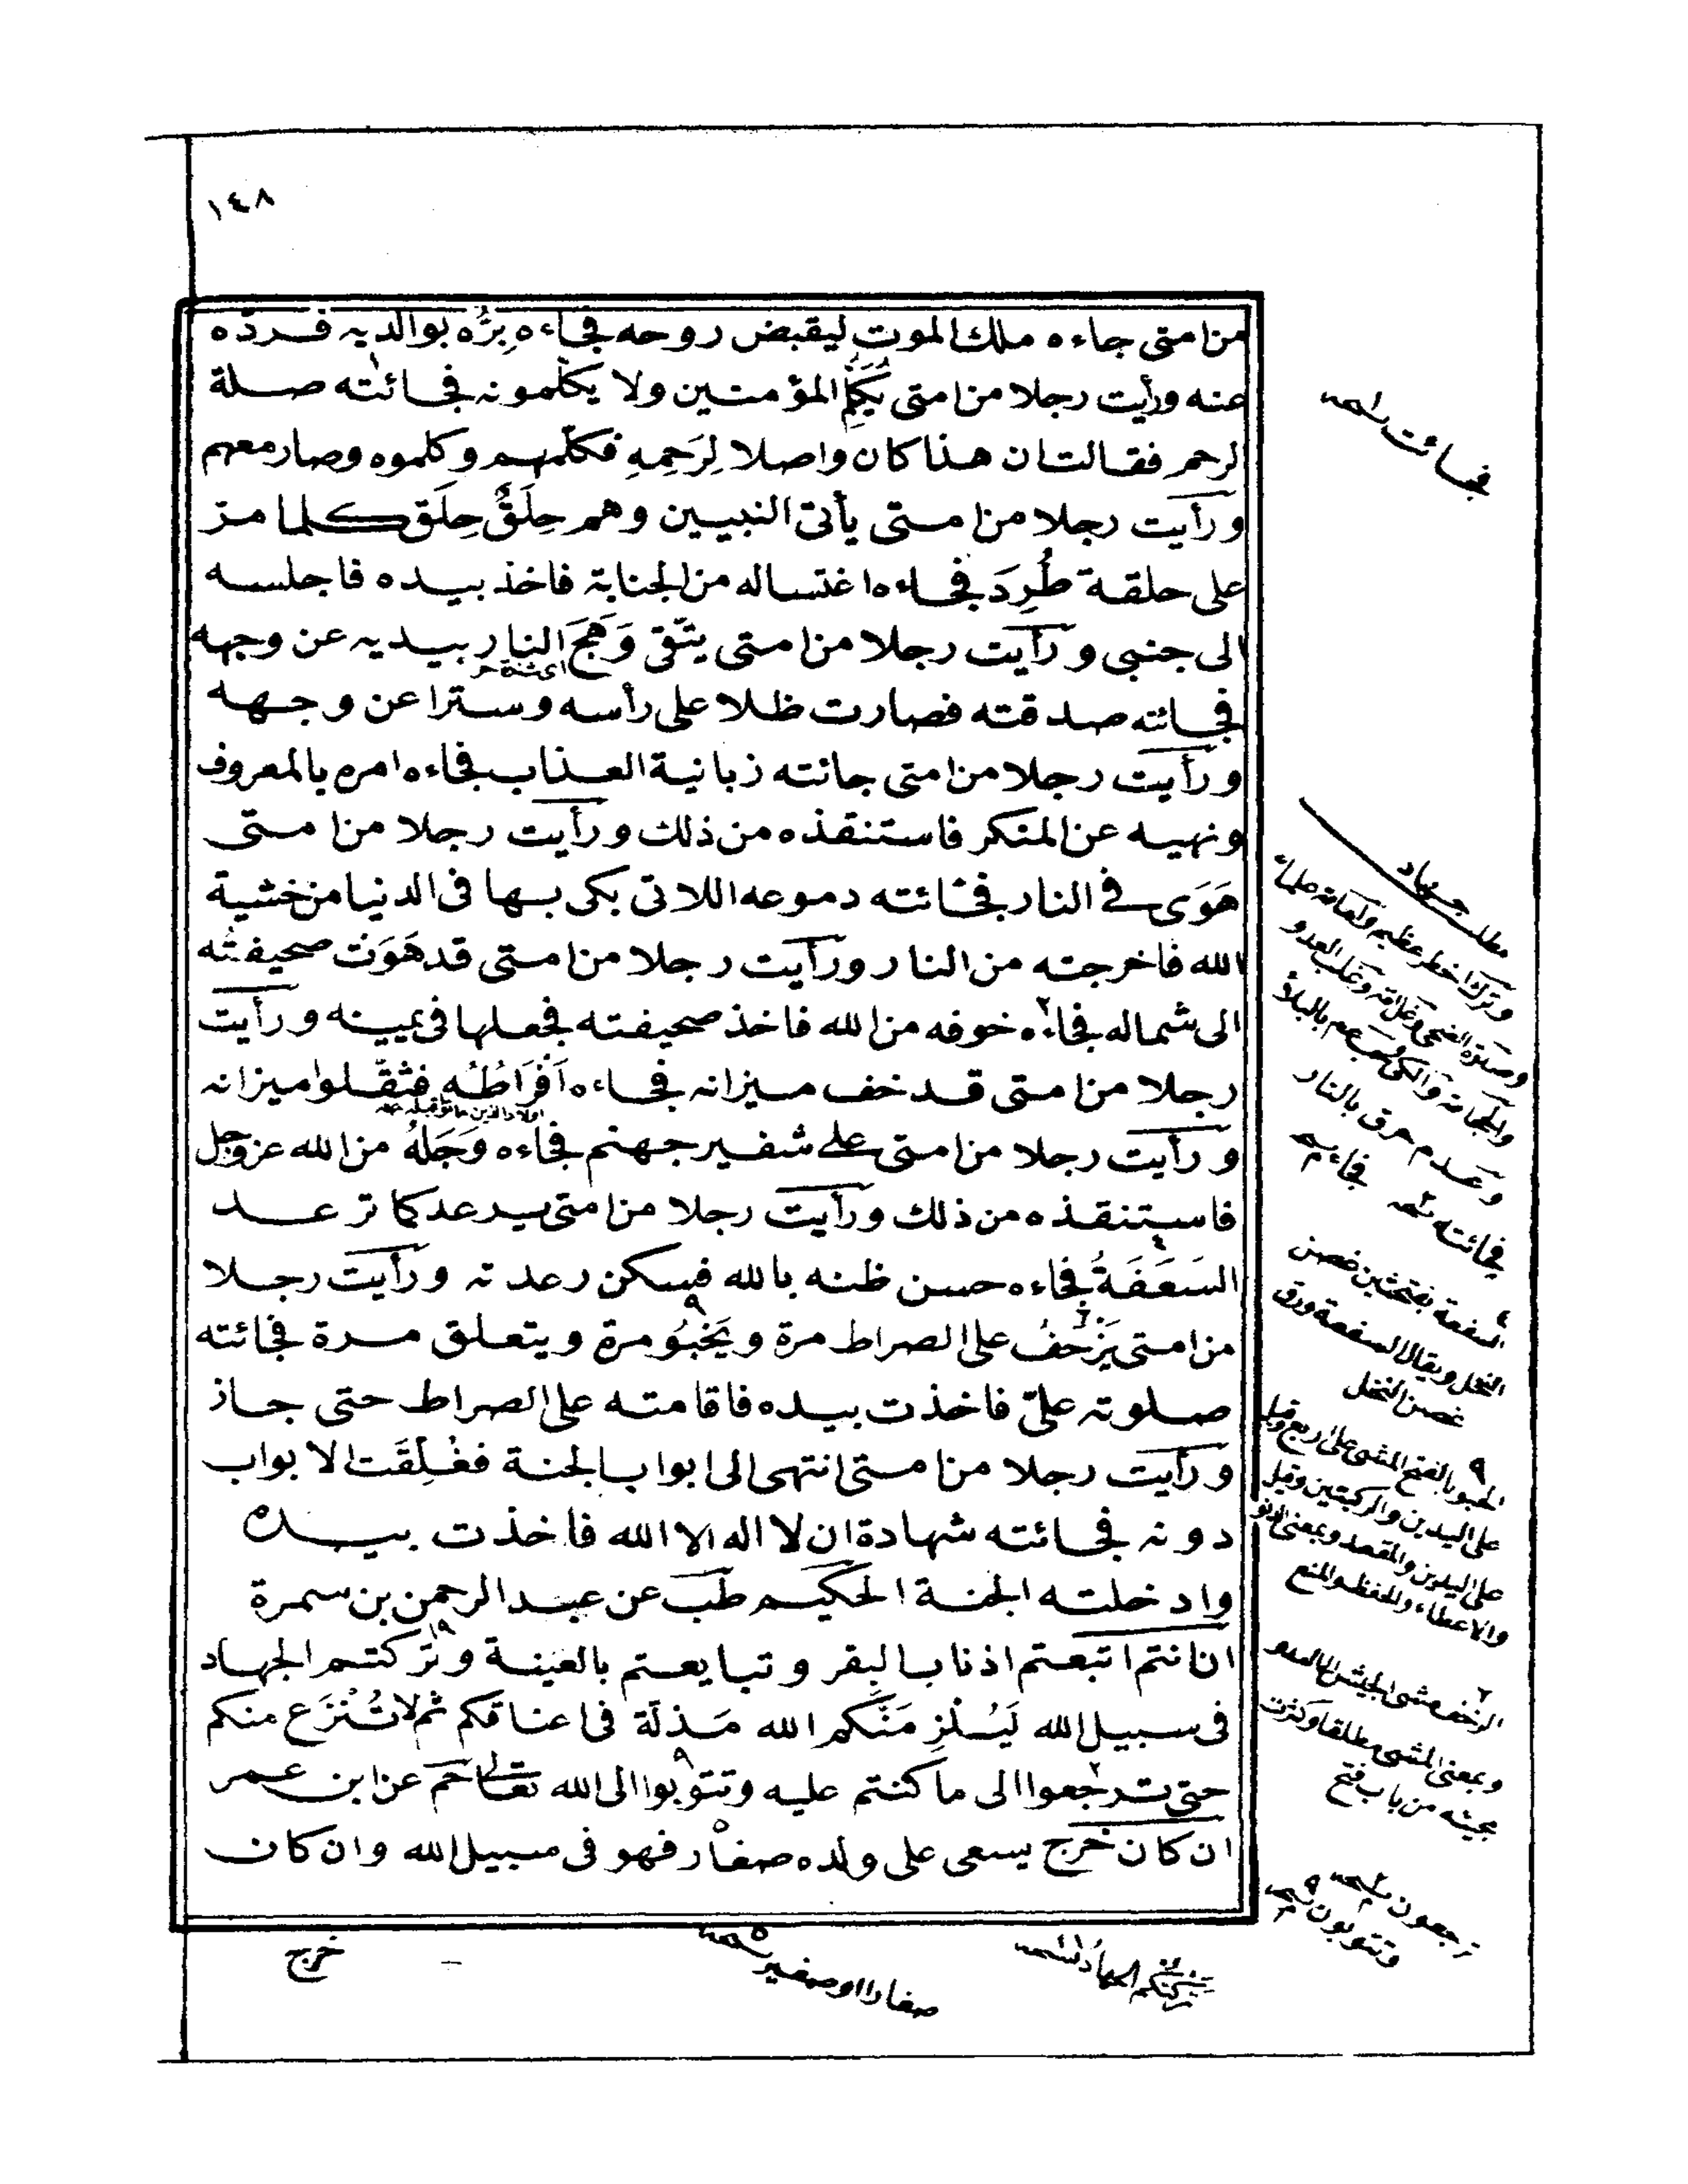 ١٤٨
من امتى جاءه ملك الموت ليقبض روحه فجاءه بِرُّه بوالديه فردّه
عنه ورأيت رجلا من امتى يُكَلِّمُ المؤمنين ولا يكلمونه فجائته صلة
الرحم فقالت ان هذا كان واصلا لِرَحِمِهِ فكلّمهم وكلموه وصار معهم
ورأيت رجلا من امتى يأتى النبيين وهم حِلَقٌ حِلَق كلما مرّ
على حلقة طُرِدَ فجاءه اغتساله من الجنابة فاخذ بيده فاجلسه
الى جنبى ورأيت رجلا من امتى يتّقى وَهَجَ النار بيديه عن وجهه
اى شدة حر
فجائته صدقته فصارت ظلا على رأسه وسترا عن وجهه
ورأيت رجلا من امتى جائته زبانية العذاب فجاءه امره بالمعروف
ونهيه عن المنكر فاستنقذه من ذلك ورأيت رجلا من امتى
هَوَى فى النار فجائته دموعه اللاتى بكى بها فى الدنيا من خشية
الله فاخرجته من النار ورأيت رجلا من امتى قد هَوَتْ صحيفتُه
الى شماله فجاءه خوفه من الله فاخذ صحيفته فجعلها فى يمينه ورأيت
رجلا من امتى قد خف ميزانه فجاءه اَفْرَاطُهُ فثقّلوا ميزانه
ورأيت رجلا من امتى على شفير جهنم فجاءه وَجَلُهُ من الله عز وجل
فاستنقذه من ذلك ورأيت رجلا من امتى يرعد كما ترعد
السَعَفَةُ فجاءه حسن ظنه بالله فسكن رعدته ورأيت رجلا
من امتى يَزْحَفُ على الصراط مرة ويَحْبُو مرة ويتعلق مرة فجائته
صلوته علىّ فاخذت بيده فاقامته على الصراط حتى جاز
ورأيت رجلا من امتى انتهى الى ابواب الجنة فغُلِقَت الابواب
دونه فجائته شهادة ان لا اله الا الله فاخذت بيده
وادخلته الجنة الحكيم طب عن عبد الرحمن بن سمرة
ان انتم اتبعتم اذناب البقر وتبايعتم بالعينة وتركتم الجهاد
فى سبيل الله لَيُلْزِمَنَّكم الله مَذلّة فى اعناقكم ثم لا تُنْزَع منكم
حتى ترجعوا الى ما كنتم عليه وتتوبوا الى الله تعالى حم عن ابن عمر
ان كان خرج يسعى على ولده صغار فهو فى سبيل الله وان كان
فجائت نسخه
مطلب جهاد
وعدم حرق بالنار
فجائته نسخه
السعفة بفتحتين غصن
النخل ويقال السعفة ورق
غصن النخل
الحبو بالفتح المشى على اربع وقيل
على اليدين والركبتين وقيل
على اليدين والمقعد وبمعنى الدنو
والاعطاء والحفظ والمنع
الزحف مشى الجيش الى العدو
وبمعنى المشى مطلقا وكثرت
ترجعون نسخه
وتتوبون نسخه
صغارا او صغير نسخه
خرج